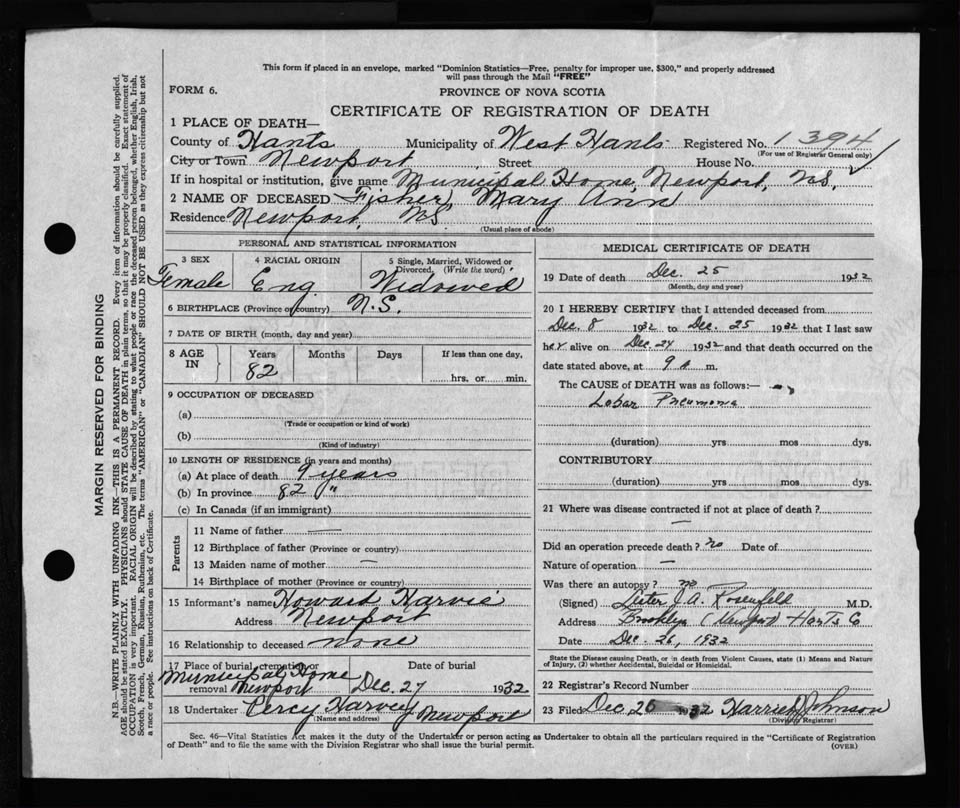 This form if placed in an envelope, marked "Dominion Statistics—Free, penalty for improper use, $300," and properly addressed
will pass through the Mail "FREE"
FORM 6.
PROVINCE OF NOVA SCOTIA
CERTIFICATE OF REGISTRATION OF DEATH
1 PLACE OF DEATH—
County of Hants Municipality of West Hants Registered No. 1394
(For use of Registrar General only)
City or Town Newport Street House No.
If in hospital or institution, give name Municipal Home, Newport, N.S.
2 NAME OF DECEASED Fisher, Mary Ann
Residence Newport, N.S.
(Usual place of abode)
PERSONAL AND STATISTICAL INFORMATION
3 SEX 4 RACIAL ORIGIN 5 Single, Married, Widowed or
Divorced. (Write the word)
Female Eng. Widowed
6 BIRTHPLACE (Province or country) N.S.
7 DATE OF BIRTH (month, day and year)
8 AGE IN Years Months Days If less than one day,
82 hrs. or min.
9 OCCUPATION OF DECEASED
(a)
(Trade or occupation or kind of work)
(b)
(Kind of industry)
10 LENGTH OF RESIDENCE (in years and months)
(a) At place of death 9 years
(b) In province 82 "
(c) In Canada (if an immigrant)
Parents
11 Name of father —
12 Birthplace of father (Province or country)
13 Maiden name of mother —
14 Birthplace of mother (Province or country)
15 Informant's name Howard Harvie
Address Newport
16 Relationship to deceased none
17 Place of burial, cremation or Date of burial
Municipal Home
removal Newport Dec. 27 1932
18 Undertaker Percy Harvey Newport
(Name and address)
MEDICAL CERTIFICATE OF DEATH
19 Date of death Dec. 25 1932
(Month, day and year)
20 I HEREBY CERTIFY that I attended deceased from
Dec. 8 1932 to Dec. 25 1932 that I last saw
her alive on Dec. 24 1932 and that death occurred on the
date stated above, at 9 a. m.
The CAUSE of DEATH was as follows:—
Lobar Pneumonia
(duration) yrs mos dys.
CONTRIBUTORY
(duration) yrs mos dys.
21 Where was disease contracted if not at place of death?
—
Did an operation precede death? no Date of
Nature of operation —
Was there an autopsy? no
(Signed) J. A. Rosenfeld M.D.
Address Brooklyn (Newport) Hants Co
Date Dec. 26, 1932
State the Disease causing Death, or in death from Violent Causes, state (1) Means and Nature
of Injury, (2) whether Accidental, Suicidal or Homicidal.
22 Registrar's Record Number
23 Filed Dec. 26 1932 Johnson
(Division Registrar)
Sec. 46—Vital Statistics Act makes it the duty of the Undertaker or person acting as Undertaker to obtain all the particulars required in the "Certificate of Registration
of Death" and to file the same with the Division Registrar who shall issue the burial permit.
(OVER)
MARGIN RESERVED FOR BINDING
N.B.—WRITE PLAINLY WITH UNFADING INK—THIS IS A PERMANENT RECORD. Every item of information should be carefully supplied.
AGE should be stated EXACTLY. PHYSICIANS should STATE CAUSE OF DEATH in plain terms, so that it may be properly classified. Exact statement of
OCCUPATION is very important. RACIAL ORIGIN will be described by stating to what people or race the deceased person belonged, whether English, Irish,
Scotch, French, German, Russian, Ruthenian, etc. The terms "AMERICAN" or "CANADIAN" SHOULD NOT BE USED as they express citizenship but not
a race or people. See instructions on back of Certificate.